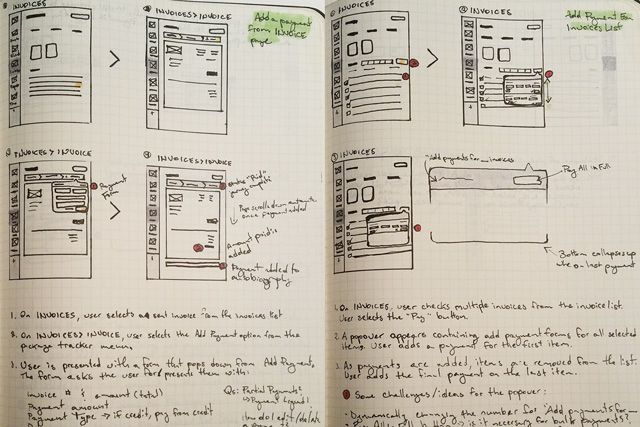 INVOICES
INVOICES > INVOICE
Add a payment
from INVOICE
page
INVOICES > INVOICE
Payment
Form
INVOICES > INVOICE
Page scrolls down
once payment added
amount paid is
added
Payment added to
1. On INVOICES, user selects a sent invoice from the invoices list
2. On INVOICES > INVOICE, user selects the Add Payment option from the
package tracker menu.
3. User is presented with a form that pops down from Add Payment.
The form asks the user and presents them with:
invoice # & amount (total)
Payment amount
Payment Type -> if credit, pay from credit
Qs: Partial Payments?
INVOICES
INVOICES
Add Payment
Invoices List
INVOICES
"Add payments for __ invoices
Pay All in Full
Bottom collapses up
when no last payment
1. On INVOICES, user checks multiple invoices from the invoice list.
User selects the "Pay" button.
2. A popover appears containing add payment forms for all selected
items. User adds a payment for the first item.
3. As payments are added, items are removed from the list.
User adds the final payment on the last item.
Some challenges/ideas for the popover:
- Dynamically changing the number for "Add payments for __
is it necessary for bulk payments?